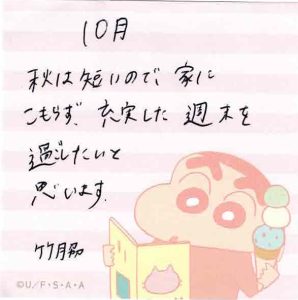 10月
秋は短いので、家に
こもらず、充実した週末を
過ごしたいと
思います。
©U/F・S・A・A